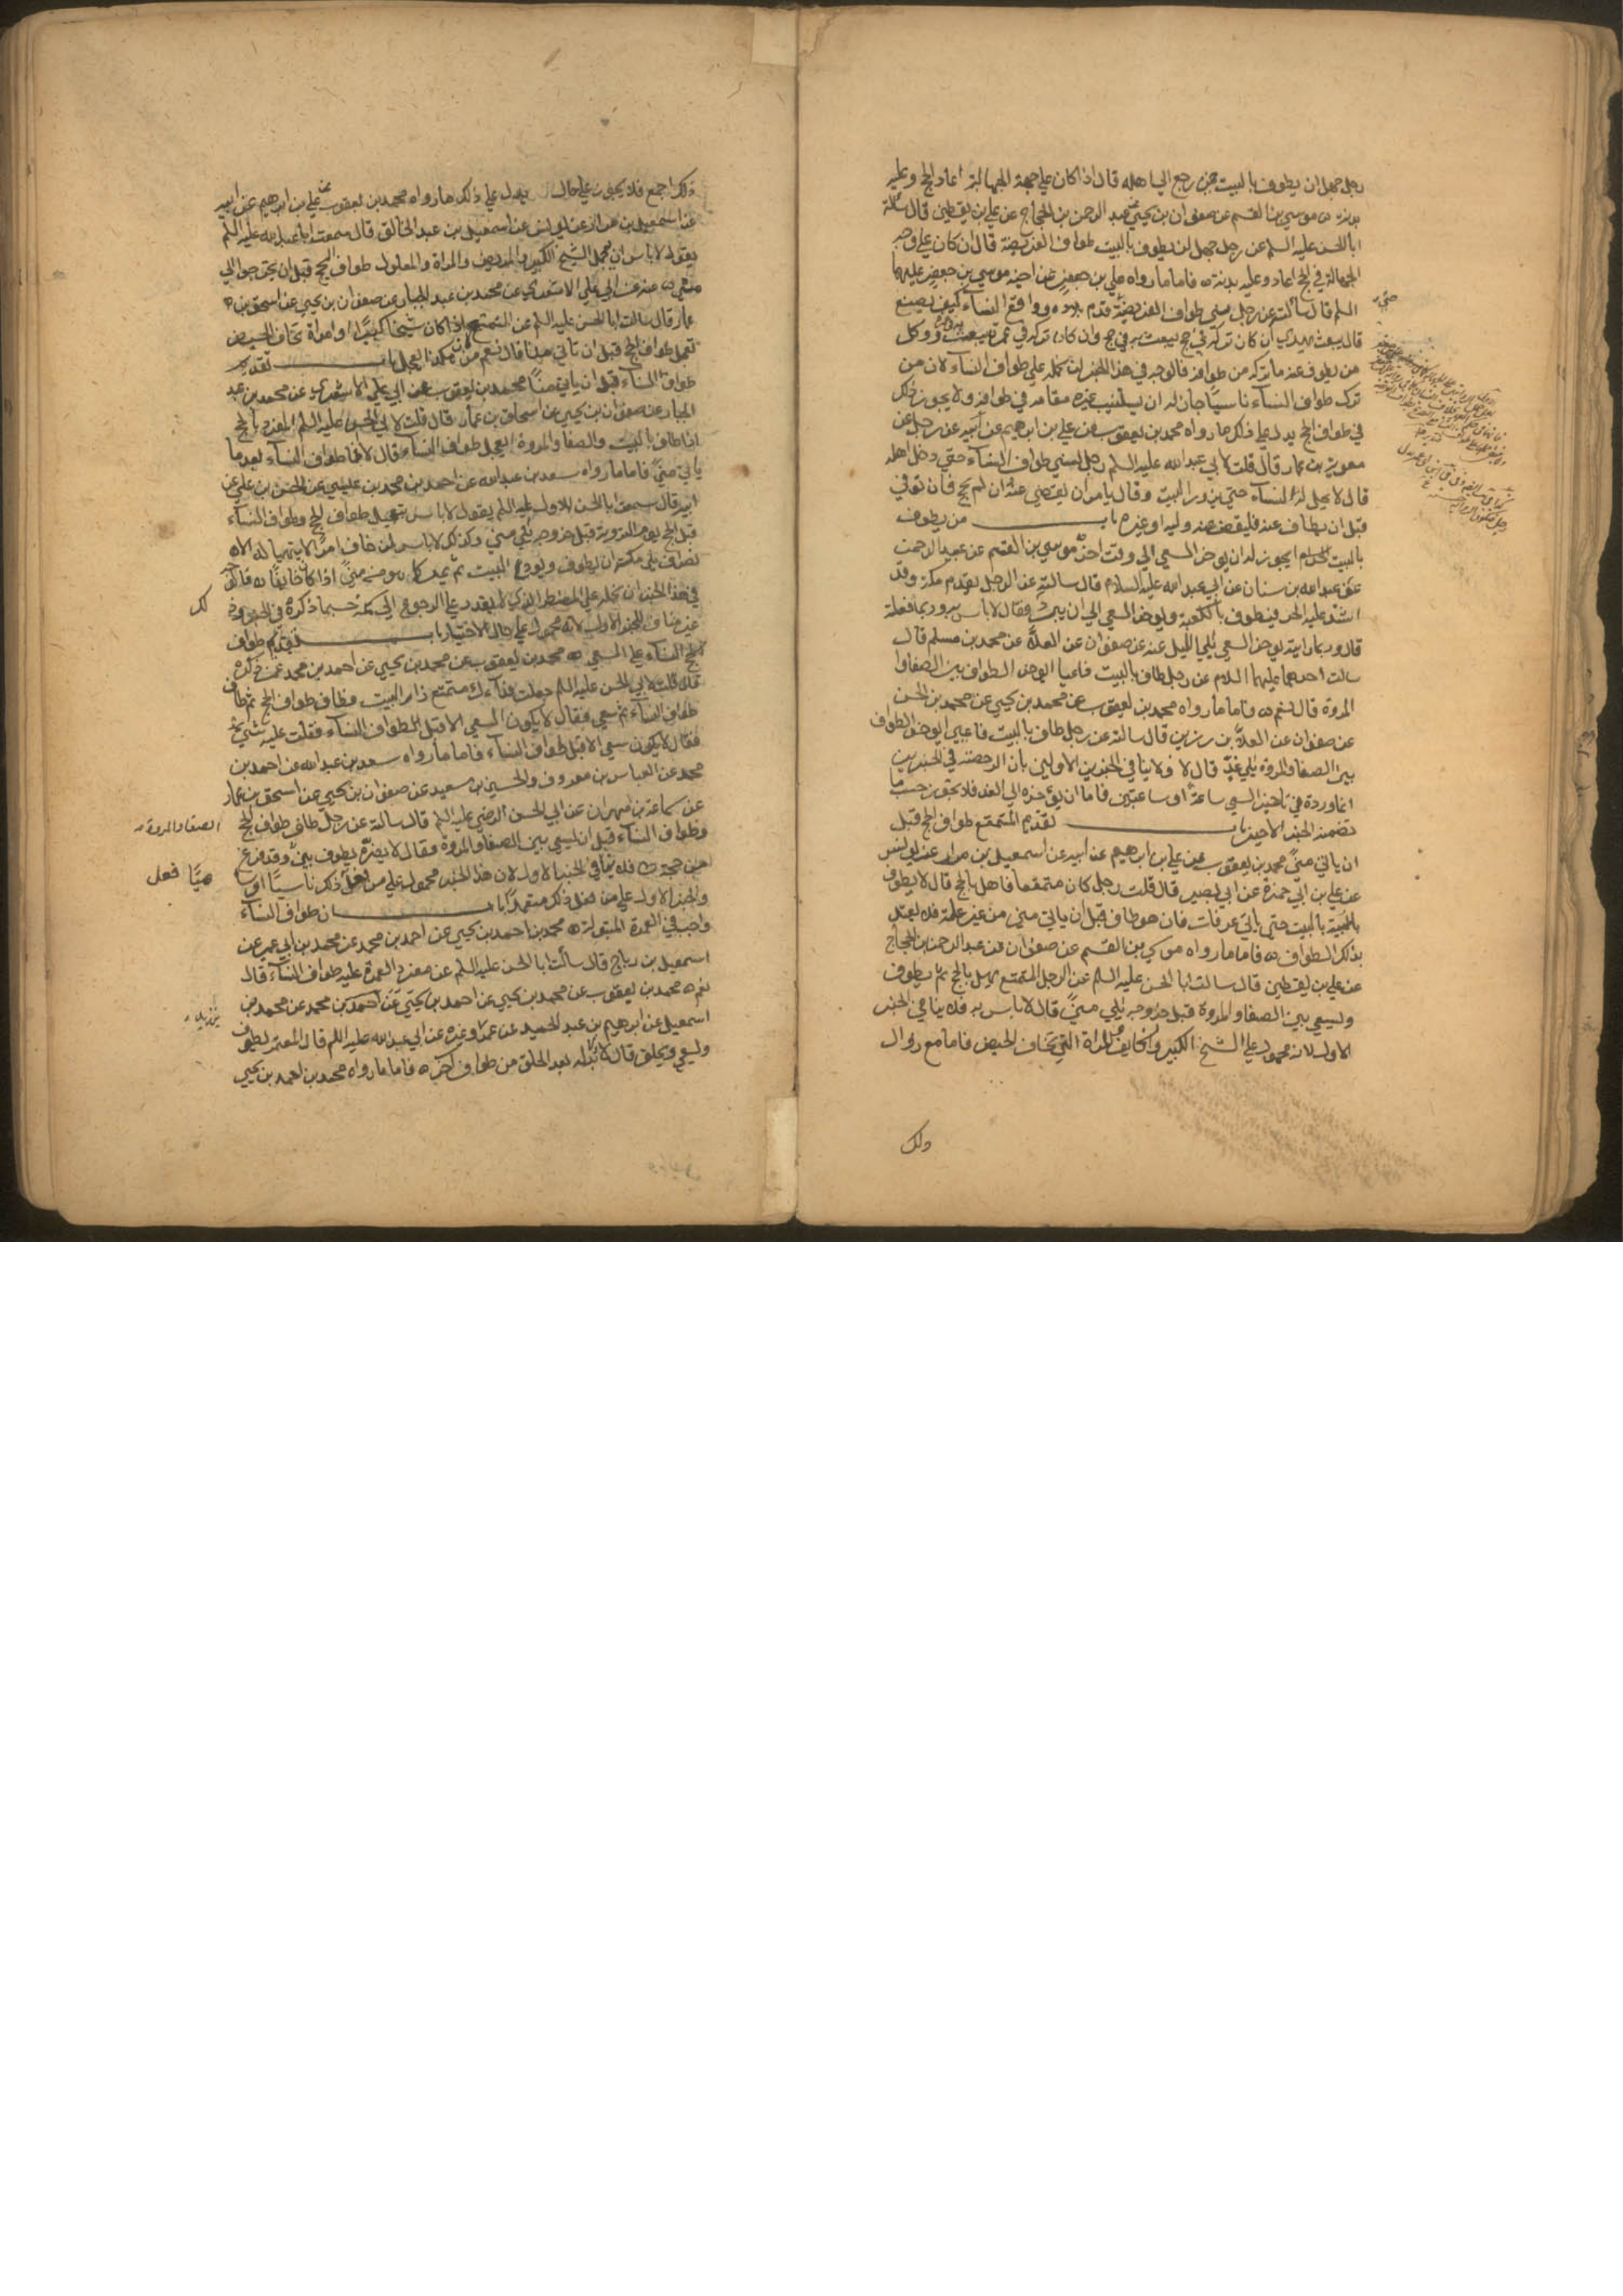 رجل جهل ان يطوف بالبيت حتى رجع الى اهله قال اذا كان على جهة الجهالة اعاد الحج وعليه
بدنه ه موسى بن القسم عن صفوان بن يحيى عن عبد الرحمن بن الحجاج عن علي بن يقطين قال سألت
ابا الحسن عليه السلم عن رجل جهل ان يطوف بالبيت طواف الفريضة قال ان كان على وجه
الجهالة في الحج اعاد وعليه بدنة ه فاما ما رواه علي بن جعفر عن اخيه موسى بن جعفر عليهما
السلم قال سألته عن رجل نسى طواف الفريضة حتى قدم بلاده وواقع النساء كيف يصنع
قال يبعث بهدي ان كان تركه في حج يبعث به في حج وان كان تركه في عمرة يبعث به في عمرة ووكل
من يطوف عنه ما تركه من طوافه فالوجه في هذا الخبر ان نحمله على طواف النساء لان من
ترك طواف النساء ناسيا جاز له ان يستنيب غيره مقامه في طوافه ولا يجوز ذلك
في طواف الحج يدل على ذلك ما رواه محمد بن يعقوب عن علي بن ابراهيم عن ابيه عن رجل عن
معوية بن عمار قال قلت لابي عبد الله عليه السلم رجل نسي طواف النساء حتى دخل اهله
قال لا يحل له النساء حتى يزور البيت وقال يامر ان يقضى عنه ان لم يحج فان توفي
قبل ان يطاف عنه فليقض عنه وليه او غيره باب من يطوف
بالبيت ايجوز له ان يؤخر السعي الى وقت اخر موسى بن القسم عن عبد الرحمن
عن عبد الله بن سنان عن ابي عبد الله عليه السلام قال سالته عن الرجل يقدم مكة وقد
اشتد عليه الحر فيطوف بالكعبة ويؤخر السعي الى ان يبرد فقال لا باس به وربما فعلته
قال وربما رايته يؤخر السعي الى الليل عنه عن صفوان عن العلاء عن محمد بن مسلم قال
سالت احدهما عليهما السلام عن رجل طاف بالبيت فاعيا ايؤخر الطواف بين الصفا و
المروة قال نعم ه فاما ما رواه محمد بن يعقوب عن محمد بن يحيى عن محمد بن الحسين
عن صفوان عن العلاء بن رزين قال سالته عن رجل طاف بالبيت فاعيى ايؤخر الطواف
بين الصفا والمروة الى غد قال لا فلا ينافي الخبرين الاولين بان الرخصة في الخبرين
انما وردت في تاخير السعي ساعة او ساعتين فاما ان يؤخره الى الغد فلا يجوز حسب ما
تضمنه الخبر الاخير باب تقديم المتمتع طواف الحج قبل
ان ياتي منى محمد بن يعقوب عن علي بن ابراهيم عن ابيه عن اسمعيل بن مرار عن يونس
عن علي بن ابي حمزة عن ابي بصير قال قلت رجل كان متمتعا فاهل بالحج قال لا يطوف
بالبيت حتى ياتي عرفات فان هو طاف قبل ان ياتي منى من غير علة فلا يعتد
بذلك الطواف ه فاما ما رواه موسى بن القسم عن صفوان عن عبد الرحمن بن الحجاج
عن علي بن يقطين قال سالت ابا الحسن عليه السلم عن الرجل المتمتع يهل بالحج ثم يطوف
ويسعى بين الصفا والمروة قبل خروجه الى منى قال لا باس به فلا ينافي الخبر
الاول لانه محمول على الشيخ الكبير والخايف والمراة التي تخاف الحيض فاما مع زوال
ذلك
ذلك اجمع فلا يجوز على حال يدل على ذلك ما رواه محمد بن يعقوب عن علي بن ابراهيم عن ابيه
عن اسمعيل بن مرار عن يونس عن اسمعيل بن عبد الخالق قال سمعت ابا عبد الله عليه السلم
يقول لا باس ان يعجل الشيخ الكبير والمريض والمراة والمعلول طواف الحج قبل ان يخرجوا الى
منى ه عنه عن ابي علي الاشعري عن محمد بن عبد الجبار عن صفوان بن يحيى عن اسحق بن
عمار قال سالت ابا الحسن عليه السلم عن المتمتع اذا كان شيخا كبيرا او امراة تخاف الحيض
تعجل طواف الحج قبل ان تاتي منى قال نعم من كان هكذا يعجل باب تقديم
طواف النساء قبل ان ياتي منى محمد بن يعقوب عن ابي علي الاشعري عن محمد بن عبد
الجبار عن صفوان بن يحيى عن اسحاق بن عمار قال قلت لابي الحسن عليه السلم المفرد بالحج
اذا طاف بالبيت والصفا والمروة ايعجل طواف النساء قال لا انما طواف النساء بعد ما
ياتي منى فاما ما رواه سعد بن عبد الله عن احمد بن محمد بن عيسى عن الحسن بن علي عن
ابيه قال سمعت ابا الحسن الاول عليه السلم يقول لا باس بتعجيل طواف الحج وطواف النساء
قبل الحج يوم التروية قبل خروجه الى منى وكذلك لا باس لمن خاف امرا لا يتهيا له الا
نصراف الى مكة ان يطوف ويودع البيت ثم يمر كما هو من منى اذا كان خايفا ه فالوجه
في هذا الخبر ان نحمله على المضطر الذي لا يقدر على الرجوع الى مكة حسبما ذكره في الخبر وذلك
غير مناف للخبر الاول لانه محمول على حال الاختيار باب تقديم طواف
الحج النساء على السعي ه محمد بن يعقوب عن محمد بن يحيى عن احمد بن محمد عمن ذكره
قال قلت لابي الحسن عليه السلم جعلت فداك متمتع زار البيت فطاف طواف الحج ثم طاف
طواف النساء ثم سعى فقال لا يكون السعي الا قبل طواف النساء فقلت عليه شيء
فقال لا يكون سعي الا قبل طواف النساء فاما ما رواه سعد بن عبد الله عن احمد بن
محمد عن العباس بن معروف والحسين بن سعيد عن صفوان بن يحيى عن اسحق بن عمار
عن سماعة بن مهران عن ابي الحسن الماضي عليه السلم قال سالته عن رجل طاف طواف الحج
وطواف النساء قبل ان يسعى بين الصفا والمروة فقال لا يضره يطوف بين الصفا والمروة وقد فرغ
من حجه ه فلا ينافي الخبر الاول لان هذا الخبر محمول على من فعل ذلك ناسيا او ساهيا
والخبر الاول على من فعل ذلك متعمدا باب ان طواف النساء
واجب في العمرة المبتولة ه محمد بن احمد بن يحيى عن احمد بن محمد عن محمد بن ابي عمير عن
اسمعيل بن رباح قال سألت ابا الحسن عليه السلم عن مفرد العمرة عليه طواف النساء قال
نعم ه محمد بن يعقوب عن محمد بن يحيى عن احمد بن محمد عن محمد بن
اسمعيل عن ابرهيم بن عبد الحميد عن عمر وغيره عن ابي عبد الله عليه السلم قال المعتمر يطوف
ويسعى ويحلق قال لا بد له بعد الحلق من طواف آخر ه فاما ما رواه محمد بن احمد بن يحيى